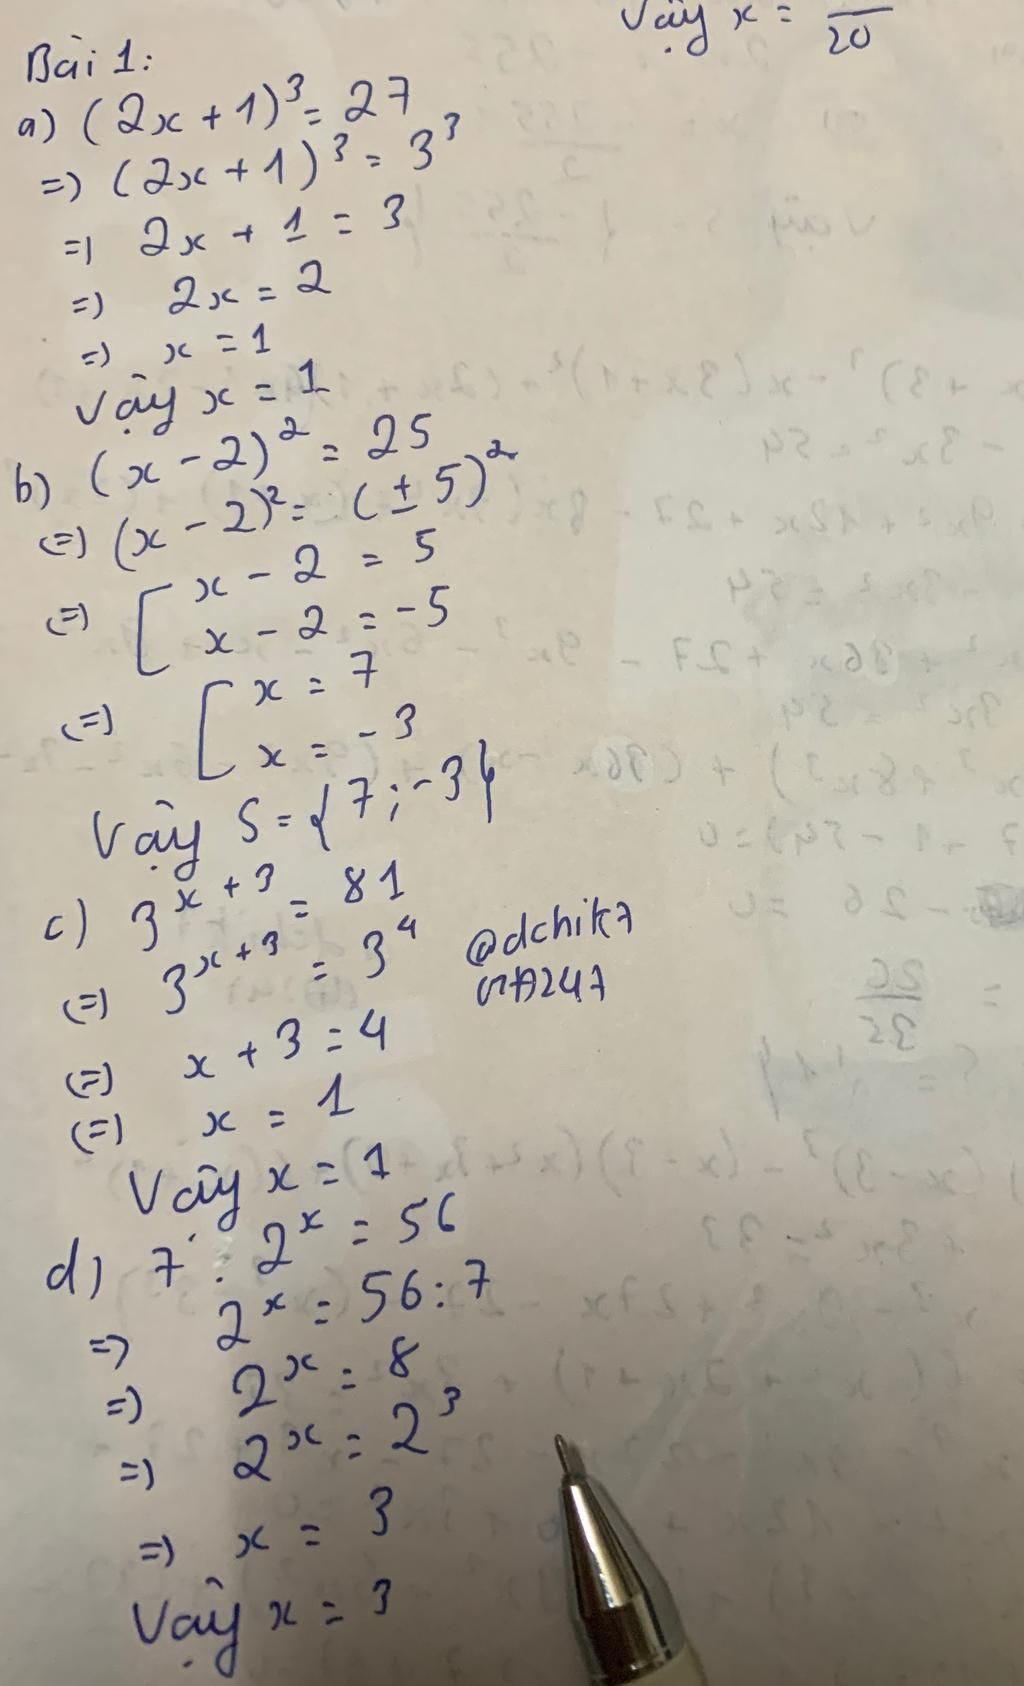 Vậy x = /20
Bài 1:
a) (2x + 1)³ = 27
=> (2x + 1)³ = 3³
=> 2x + 1 = 3
=> 2x = 2
=> x = 1
Vậy x = 1
b) (x - 2)² = 25
(=) (x - 2)² = (± 5)²
(=) [ x - 2 = 5
x - 2 = -5
(=) [ x = 7
x = -3
Vậy S = {7; -3}
c) 3^(x + 3) = 81
(=) 3^(x + 3) = 3⁴
@dchik7
(=) x + 3 = 4
(=) x = 1
Vậy x = 1
d) 7 . 2^x = 56
=> 2^x = 56 : 7
=> 2^x = 8
=> 2^x = 2³
=> x = 3
Vậy x = 3